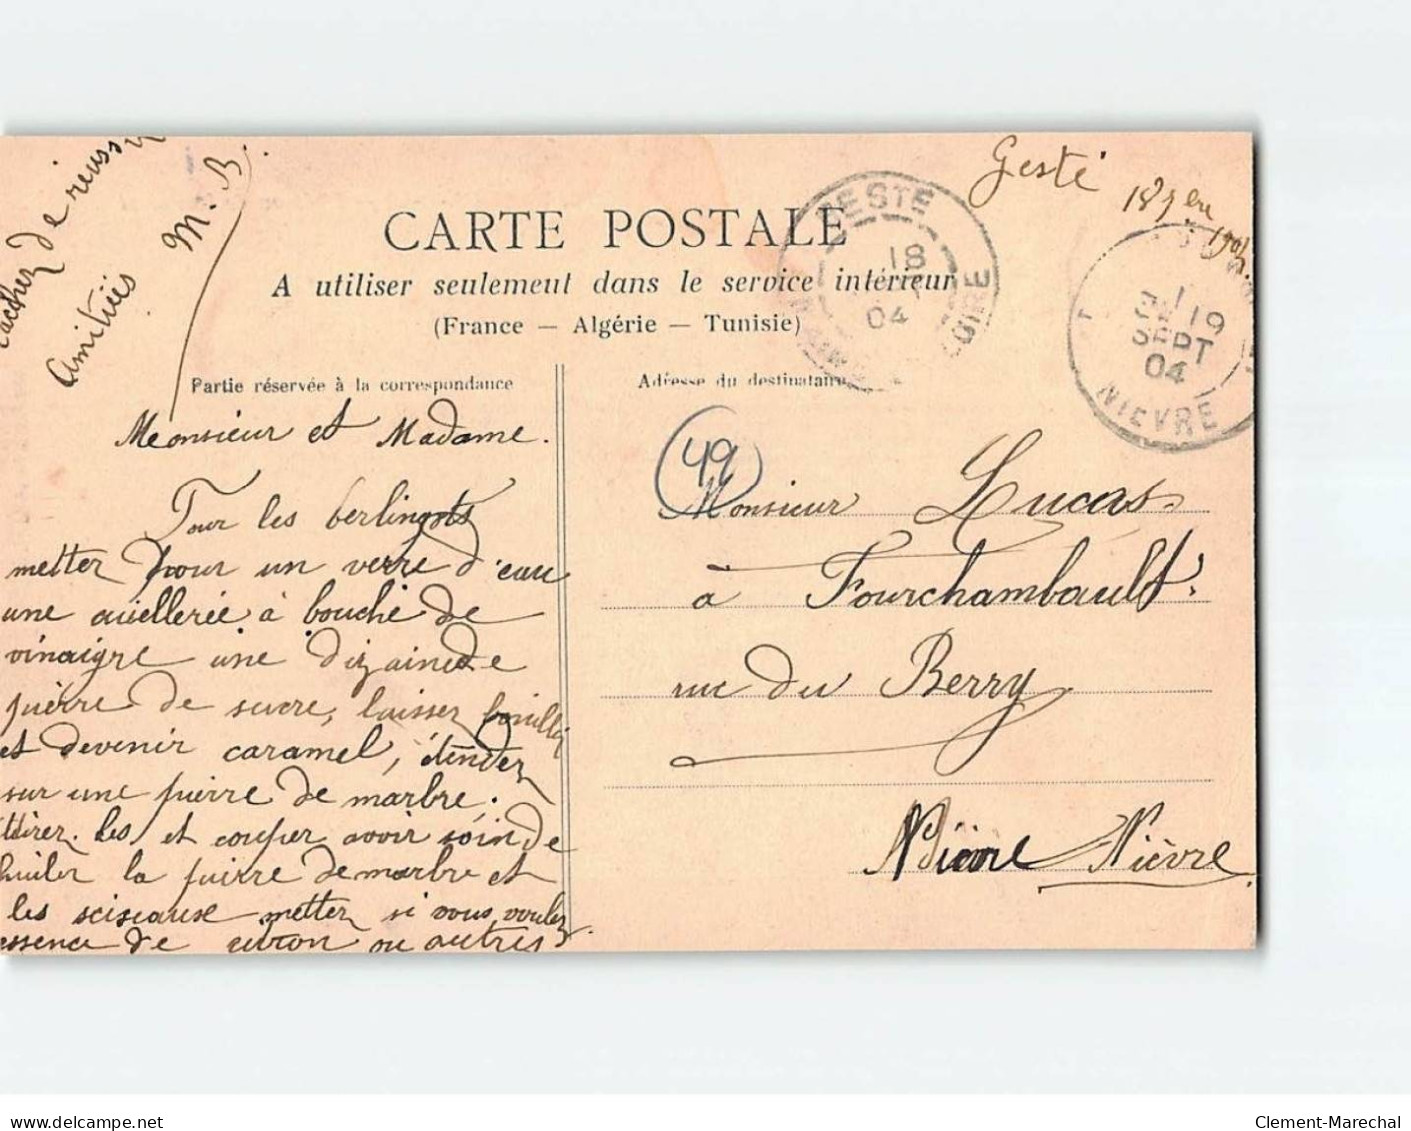 Gesté
18 7ère
1904
CARTE POSTALE
A utiliser seulement dans le service intérieur
(France — Algérie — Tunisie)
GESTÉ
18
04
LOIRE
1
19
SEPT
04
NIEVRE
Partie réservée à la correspondance
Monsieur et Madame.
Pour les berlingots
metter pour un verre d'eau
une cuillerée à bouche de
vinaigre une dizaine de
pierre de sucre, laisser bouillir
et devenir caramel, étender
sur une pierre de marbre.
ttirer les et couper avoir soin de
huiler la pierre de marbre et
les sciseause metter si vous vouler
essence de citron ou autres
tacher de réussir
amitiés
M. B.
Adresse du destinataire
49
Monsieur Lucas
à Fourchambault.
rue du Berry
Nièvre Nièvre
delcampe.net
Clement-Marechal